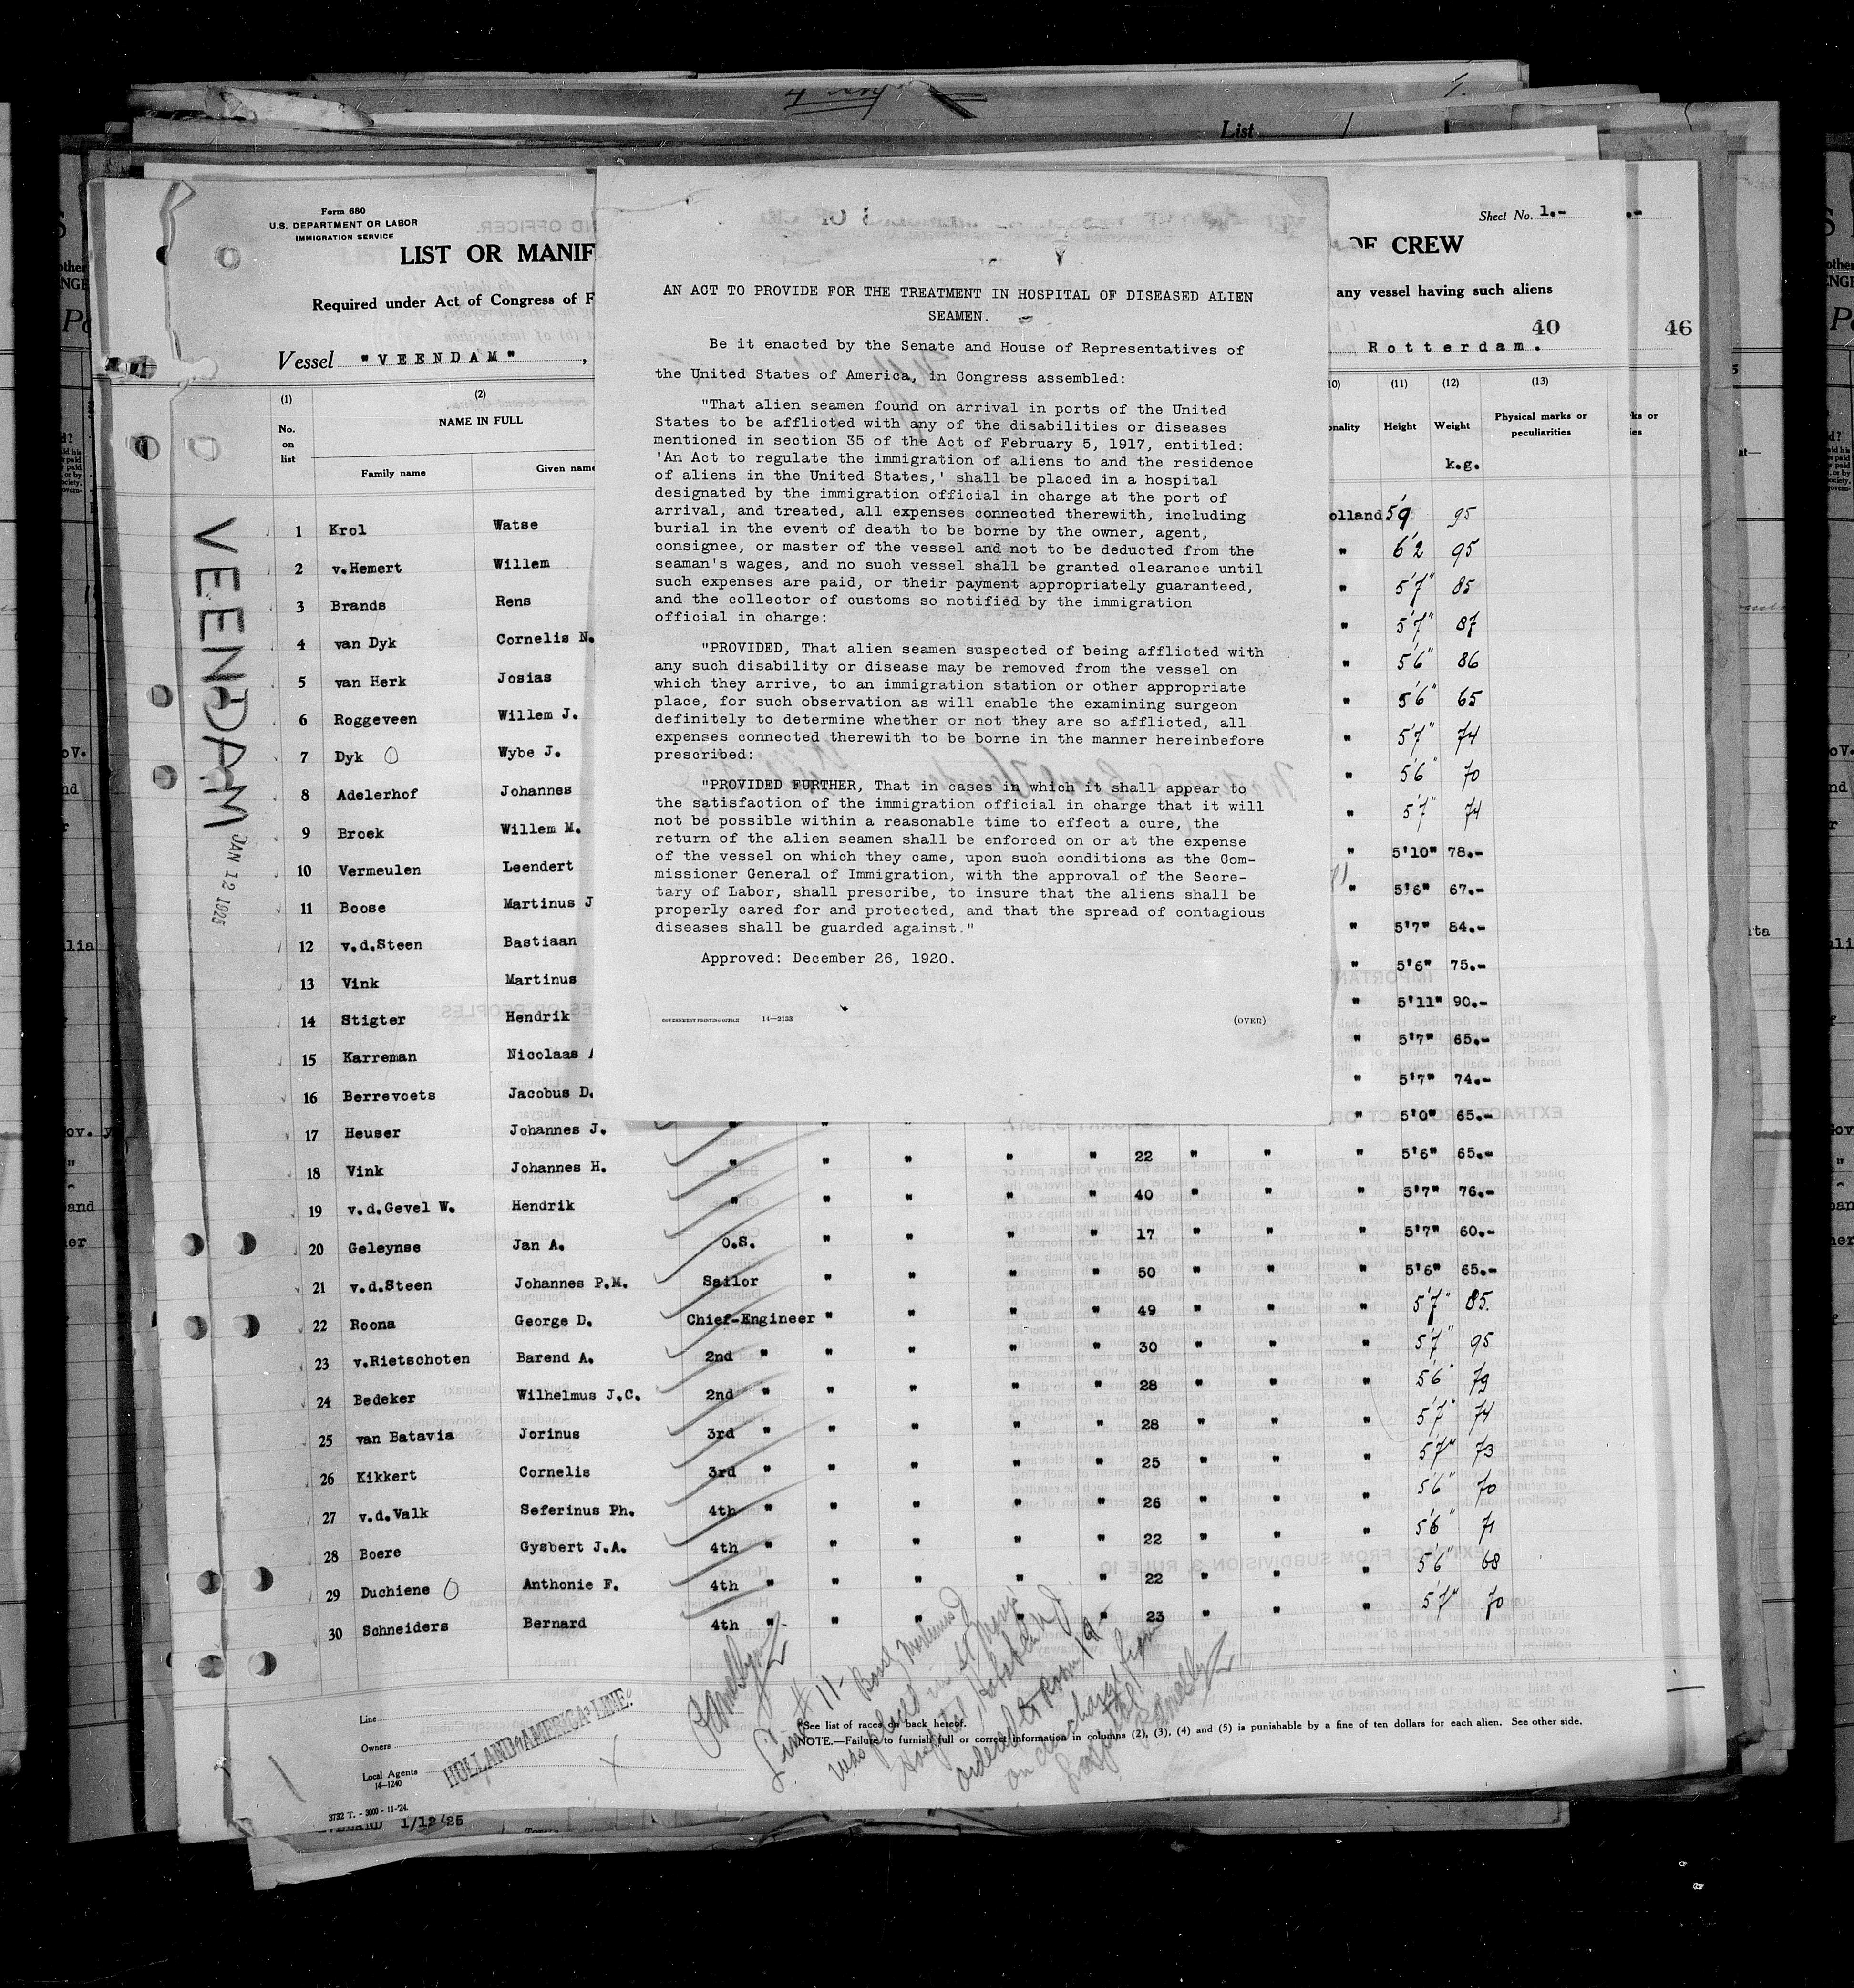 4
List 1
Form 680
U.S. DEPARTMENT OR LABOR
IMMIGRATION SERVICE
Sheet No. 1.-
LIST OR MANIF
OF CREW
Required under Act of Congress of F
any vessel having such aliens
40 46
Vessel "VEENDAM" ,
Rotterdam.
AN ACT TO PROVIDE FOR THE TREATMENT IN HOSPITAL OF DISEASED ALIEN
SEAMEN.
Be it enacted by the Senate and House of Representatives of
the United States of America, in Congress assembled:
"That alien seamen found on arrival in ports of the United
States to be afflicted with any of the disabilities or diseases
mentioned in section 35 of the Act of February 5, 1917, entitled:
'An Act to regulate the immigration of aliens to and the residence
of aliens in the United States,' shall be placed in a hospital
designated by the immigration official in charge at the port of
arrival, and treated, all expenses connected therewith, including
burial in the event of death to be borne by the owner, agent,
consignee, or master of the vessel and not to be deducted from the
seaman's wages, and no such vessel shall be granted clearance until
such expenses are paid, or their payment appropriately guaranteed,
and the collector of customs so notified by the immigration
official in charge:
"PROVIDED, That alien seamen suspected of being afflicted with
any such disability or disease may be removed from the vessel on
which they arrive, to an immigration station or other appropriate
place, for such observation as will enable the examining surgeon
definitely to determine whether or not they are so afflicted, all
expenses connected therewith to be borne in the manner hereinbefore
prescribed:
"PROVIDED FURTHER, That in cases in which it shall appear to
the satisfaction of the immigration official in charge that it will
not be possible within a reasonable time to effect a cure, the
return of the alien seamen shall be enforced on or at the expense
of the vessel on which they came, upon such conditions as the Com-
missioner General of Immigration, with the approval of the Secre-
tary of Labor, shall prescribe, to insure that the aliens shall be
properly cared for and protected, and that the spread of contagious
diseases shall be guarded against."
Approved: December 26, 1920.
GOVERNMENT PRINTING OFFICE 14—2138 (OVER)
(1) (2) 10) (11) (12) (13)
No. on list
NAME IN FULL
Family name Given name
onality Height Weight
Physical marks or
peculiarities
k.g.
VEENDAM JAN 12 1925
1 Krol Watse olland 5'9 95
2 v.Hemert Willem " 6'2 95
3 Brands Rens " 5'7" 85
4 van Dyk Cornelis N. " 5'7" 87
5 van Herk Josias " 5'6" 86
6 Roggeveen Willem J. " 5'6" 65
7 Dyk Wybe J. " 5'7" 74
8 Adelerhof Johannes " 5'6" 70
9 Broek Willem M. " 5'7" 74
10 Vermeulen Leendert " 5'10" 78.-
11 Boose Martinus J " 5'6" 67.-
12 v.d.Steen Bastiaan " 5'7" 84.-
13 Vink Martinus " 5'6" 75.-
14 Stigter Hendrik " 5'11" 90.-
15 Karreman Nicolaas " 5'7" 65.-
16 Berrevoets Jacobus D. " 5'7" 74.-
17 Heuser Johannes J. " 5'0" 65.-
18 Vink Johannes H. " " " " " 22 " " " 5'6" 65.-
19 v.d.Gevel W. Hendrik " " " " " 40 " " " 5'7" 76.-
20 Geleynse Jan A. O.S. " " " " 17 " " " 5'7" 60.-
21 v.d.Steen Johannes P.M. Sailor " " " " 50 " " " 5'6" 65.-
22 Roona George D. Chief-Engineer " " " " 49 " " " 5'7" 85.
23 v.Rietschoten Barend A. 2nd " " " " " 30 " " " 5'7" 95
24 Bedeker Wilhelmus J.C. 2nd " " " " " 28 " " " 5'6" 79
25 van Batavia Jorinus 3rd " " " " " 28 " " " 5'7" 74
26 Kikkert Cornelis 3rd " " " " " 25 " " " 5'7" 73
27 v.d.Valk Seferinus Ph. 4th " " " " " 26 " " " 5'6" 70
28 Boere Gysbert J.A. 4th " " " " " 22 " " " 5'6" 71
29 Duchiene Anthonie F. 4th " " " " " 22 " " " 5'6" 68
30 Schneiders Bernard 4th " " " " " 23 " " " 5'7" 70
Line # 11
was placed in St Mary's
Hospital, Hoboken N.J.
ordered to Room 19
on discharge from
hospital
Line
Owners
Local Agents
14—1240
HOLLAND AMERICA LINE.
*See list of races on back hereof.
NOTE.—Failure to furnish full or correct information in columns (2), (3), (4) and (5) is punishable by a fine of ten dollars for each alien. See other side.
3732 T. - 3000 - 11-'24.
1/12/25